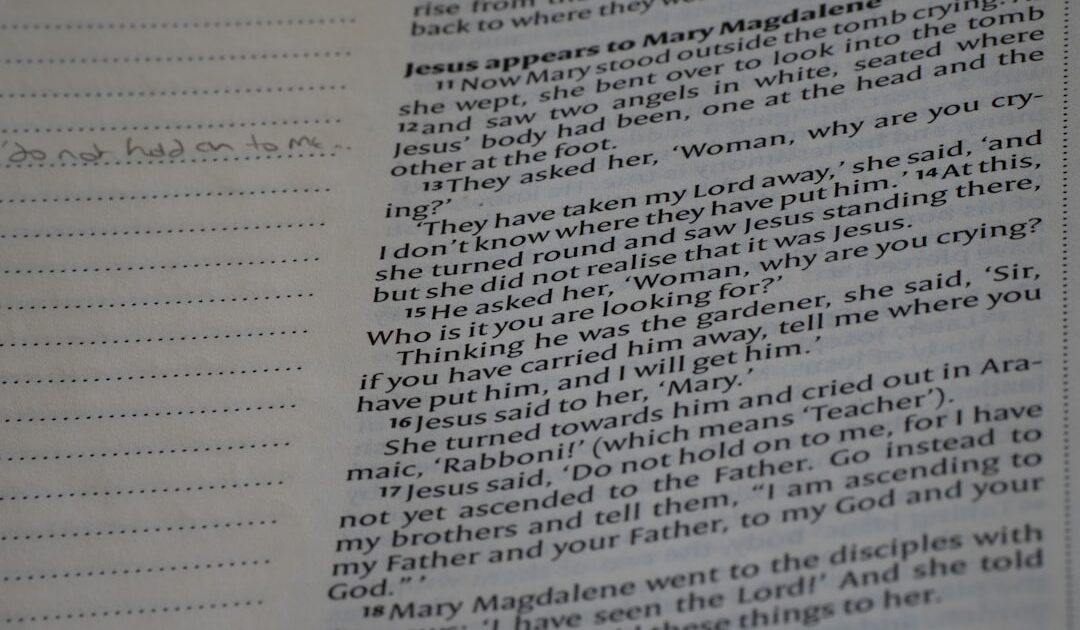 'do not hold on to me
rise from the
back to where they we
Jesus appears to Mary Magdalene
11 Now Mary stood outside the tomb crying.
she wept, she bent over to look into the tomb
12 and saw two angels in white, seated where
Jesus' body had been, one at the head and the
other at the foot.
13 They asked her, 'Woman, why are you cry-
ing?'
'They have taken my Lord away,' she said, 'and
I don't know where they have put him.' 14 At this,
she turned round and saw Jesus standing there,
but she did not realise that it was Jesus.
15 He asked her, 'Woman, why are you crying?
Who is it you are looking for?'
Thinking he was the gardener, she said, 'Sir,
if you have carried him away, tell me where you
have put him, and I will get him.'
16 Jesus said to her, 'Mary.'
She turned towards him and cried out in Ara-
maic, 'Rabboni!' (which means 'Teacher').
17 Jesus said, 'Do not hold on to me, for I have
not yet ascended to the Father. Go instead to
my brothers and tell them, "I am ascending to
my Father and your Father, to my God and your
God." '
18 Mary Magdalene went to the disciples with
'I have seen the Lord!' And she told
these things to her.